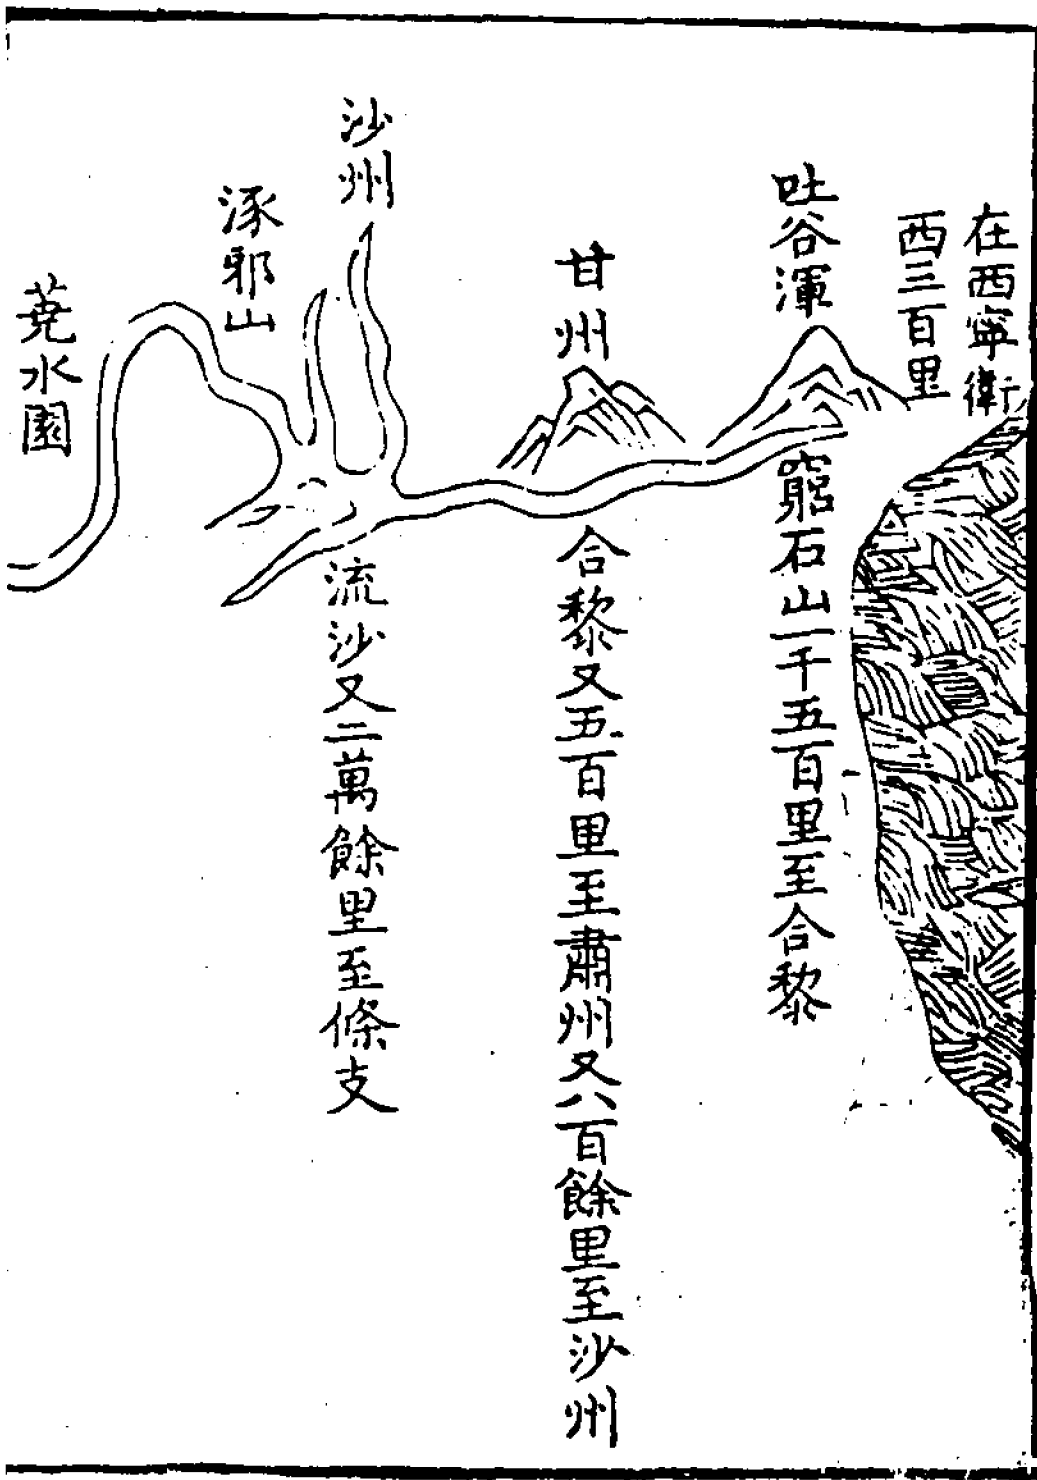 在西寧衛
西三百里
吐谷渾
窮石山一千五百里至合黎
甘州
合黎又五百里至肅州又八百餘里至沙州
沙州
流沙又二萬餘里至條支
涿邪山
蕘水園